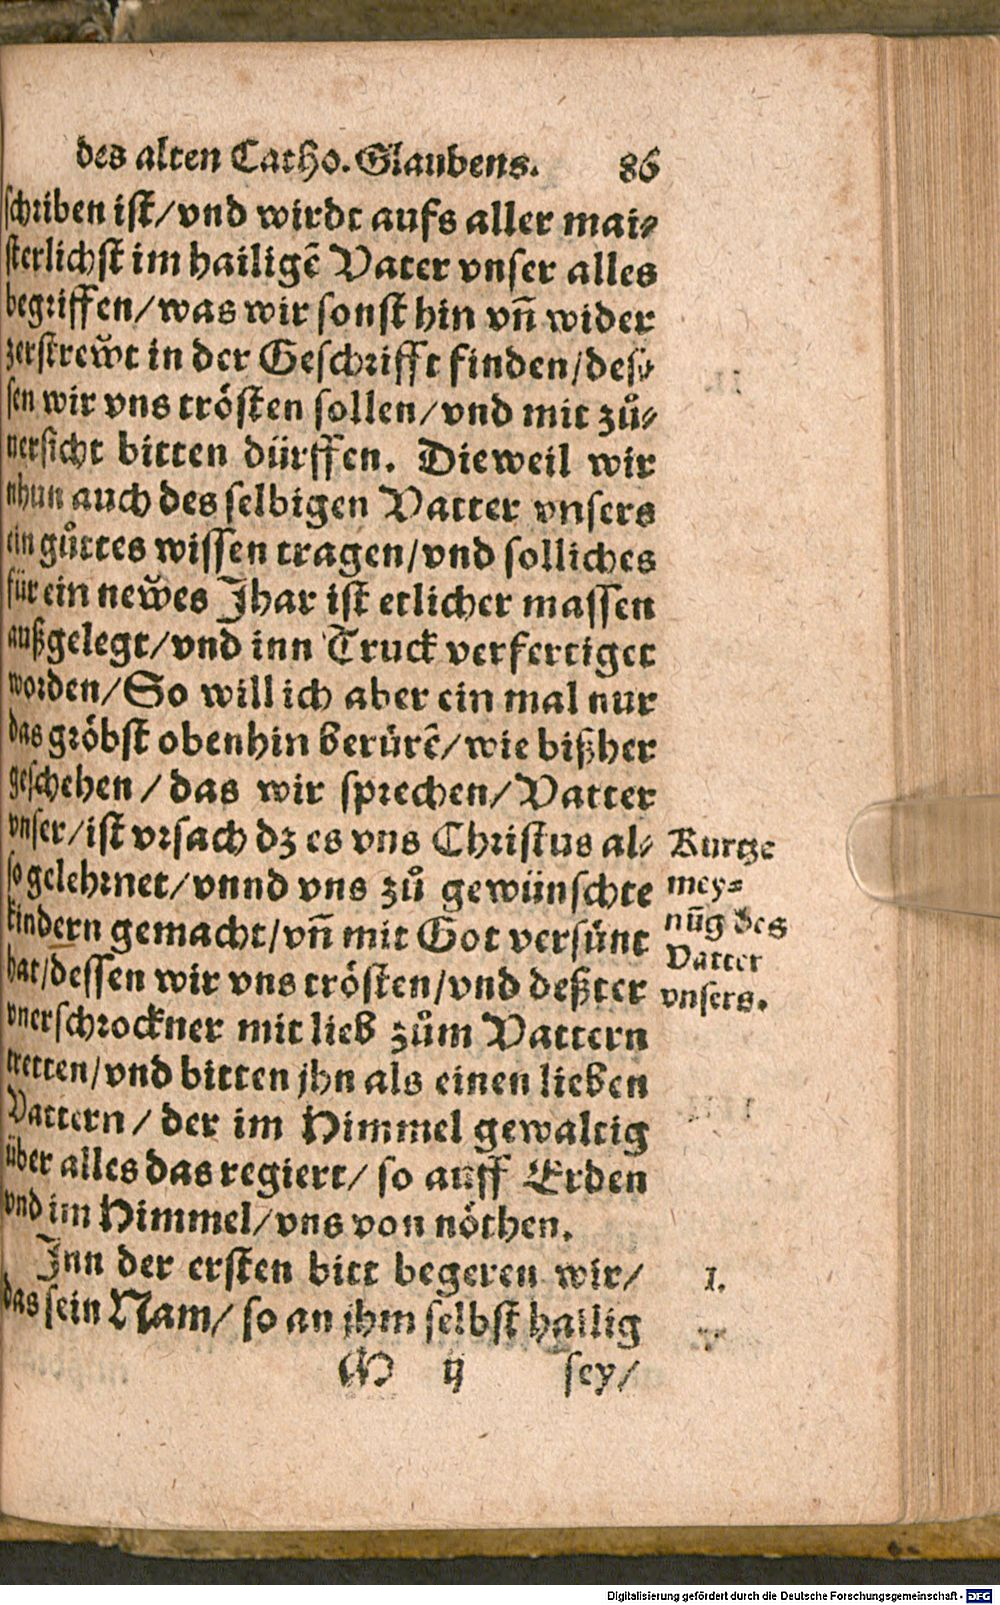 des alten Catho. Glaubens. 86
schriben ist/ vnd wirdt aufs aller mai⸗
sterlichst im hailigē Vater vnser alles
begriffen/ was wir sonst hin vn̄ wider
zerstrew̆t in der Geschrifft finden/ des⸗
sen wir vns trösten sollen/ vnd mit zů⸗
uersicht bitten dürffen. Dieweil wir
nhun auch des selbigen Vatter vnsers
ein gůttes wissen tragen/ vnd solliches
für ein new̆es Jhar ist etlicher massen
außgelegt/ vnd inn Truck verfertiget
worden/ So will ich aber ein mal nur
das gröbst obenhin berürē/ wie bißher
geschehen/ das wir sprechen/ Vatter
vnser/ ist vrsach dz es vns Christus al⸗
so gelehrnet/ vnnd vns zů gewünschte
kindern gemacht/ vn̄ mit Got versünt
hat/ dessen wir vns trösten/ vnd deßter
vnerschrockner mit lieb zům Vattern
tretten/ vnd bitten jhn als einen lieben
Vattern/ der im Himmel gewaltig
über alles das regiert/ so auff Erden
vnd im Himmel/ vns von nöthen.
Inn der ersten bitt begeren wir/
das sein Nam/ so an jhm selbst hailig
M ij sey/
Kurtze
mey⸗
nūg des
Vatter
vnsers.
1.
Digitalisierung gefördert durch die Deutsche Forschungsgemeinschaft - DFG